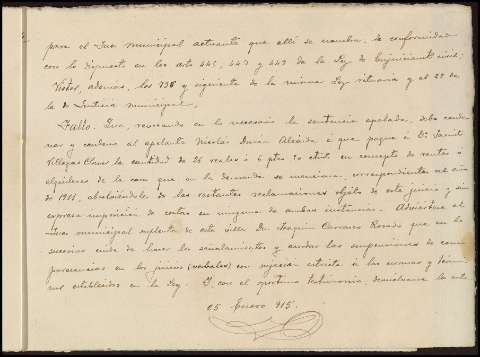 para el Juez municipal actuante que allí se nombra, de conformidad
con lo dispuesto en los arts 445, 447 y 449 de la Ley de Enjuiciamt civil;
Vistos, ademas, los 736 y siguiente de la misma Ley rituaria y el 29 de
la de Justicia municipal,
Fallo. Que, revocando en lo necesario la sentencia apelada, debo conde
nar y condeno al apelante Nicolás Durán á que pague á Dn
Villegas la cantidad de 26 reales ó 6 ptas 50 ctms. en concepto de rentas ó
alquileres de la casa que en la demanda se menciona, correspondientes al año
de 1911, absolviéndole de las restantes reclamaciones objeto de este juicio y sin
expresa imposición de costas en ninguna de ambas instancias. Adviertase al
Juez municipal suplente de esta villa Dn Joaquin Carrasco Rosado que en lo
sucesivo cuide de hacer los señalamientos y acordar las suspensiones de com
parecencias en los juicios (verbales) con sujeción estricta á las normas y térmi
nos establecidos en la Ley. Y con el oportuno testimonio, devuélvanse los autos
25 Enero 915.